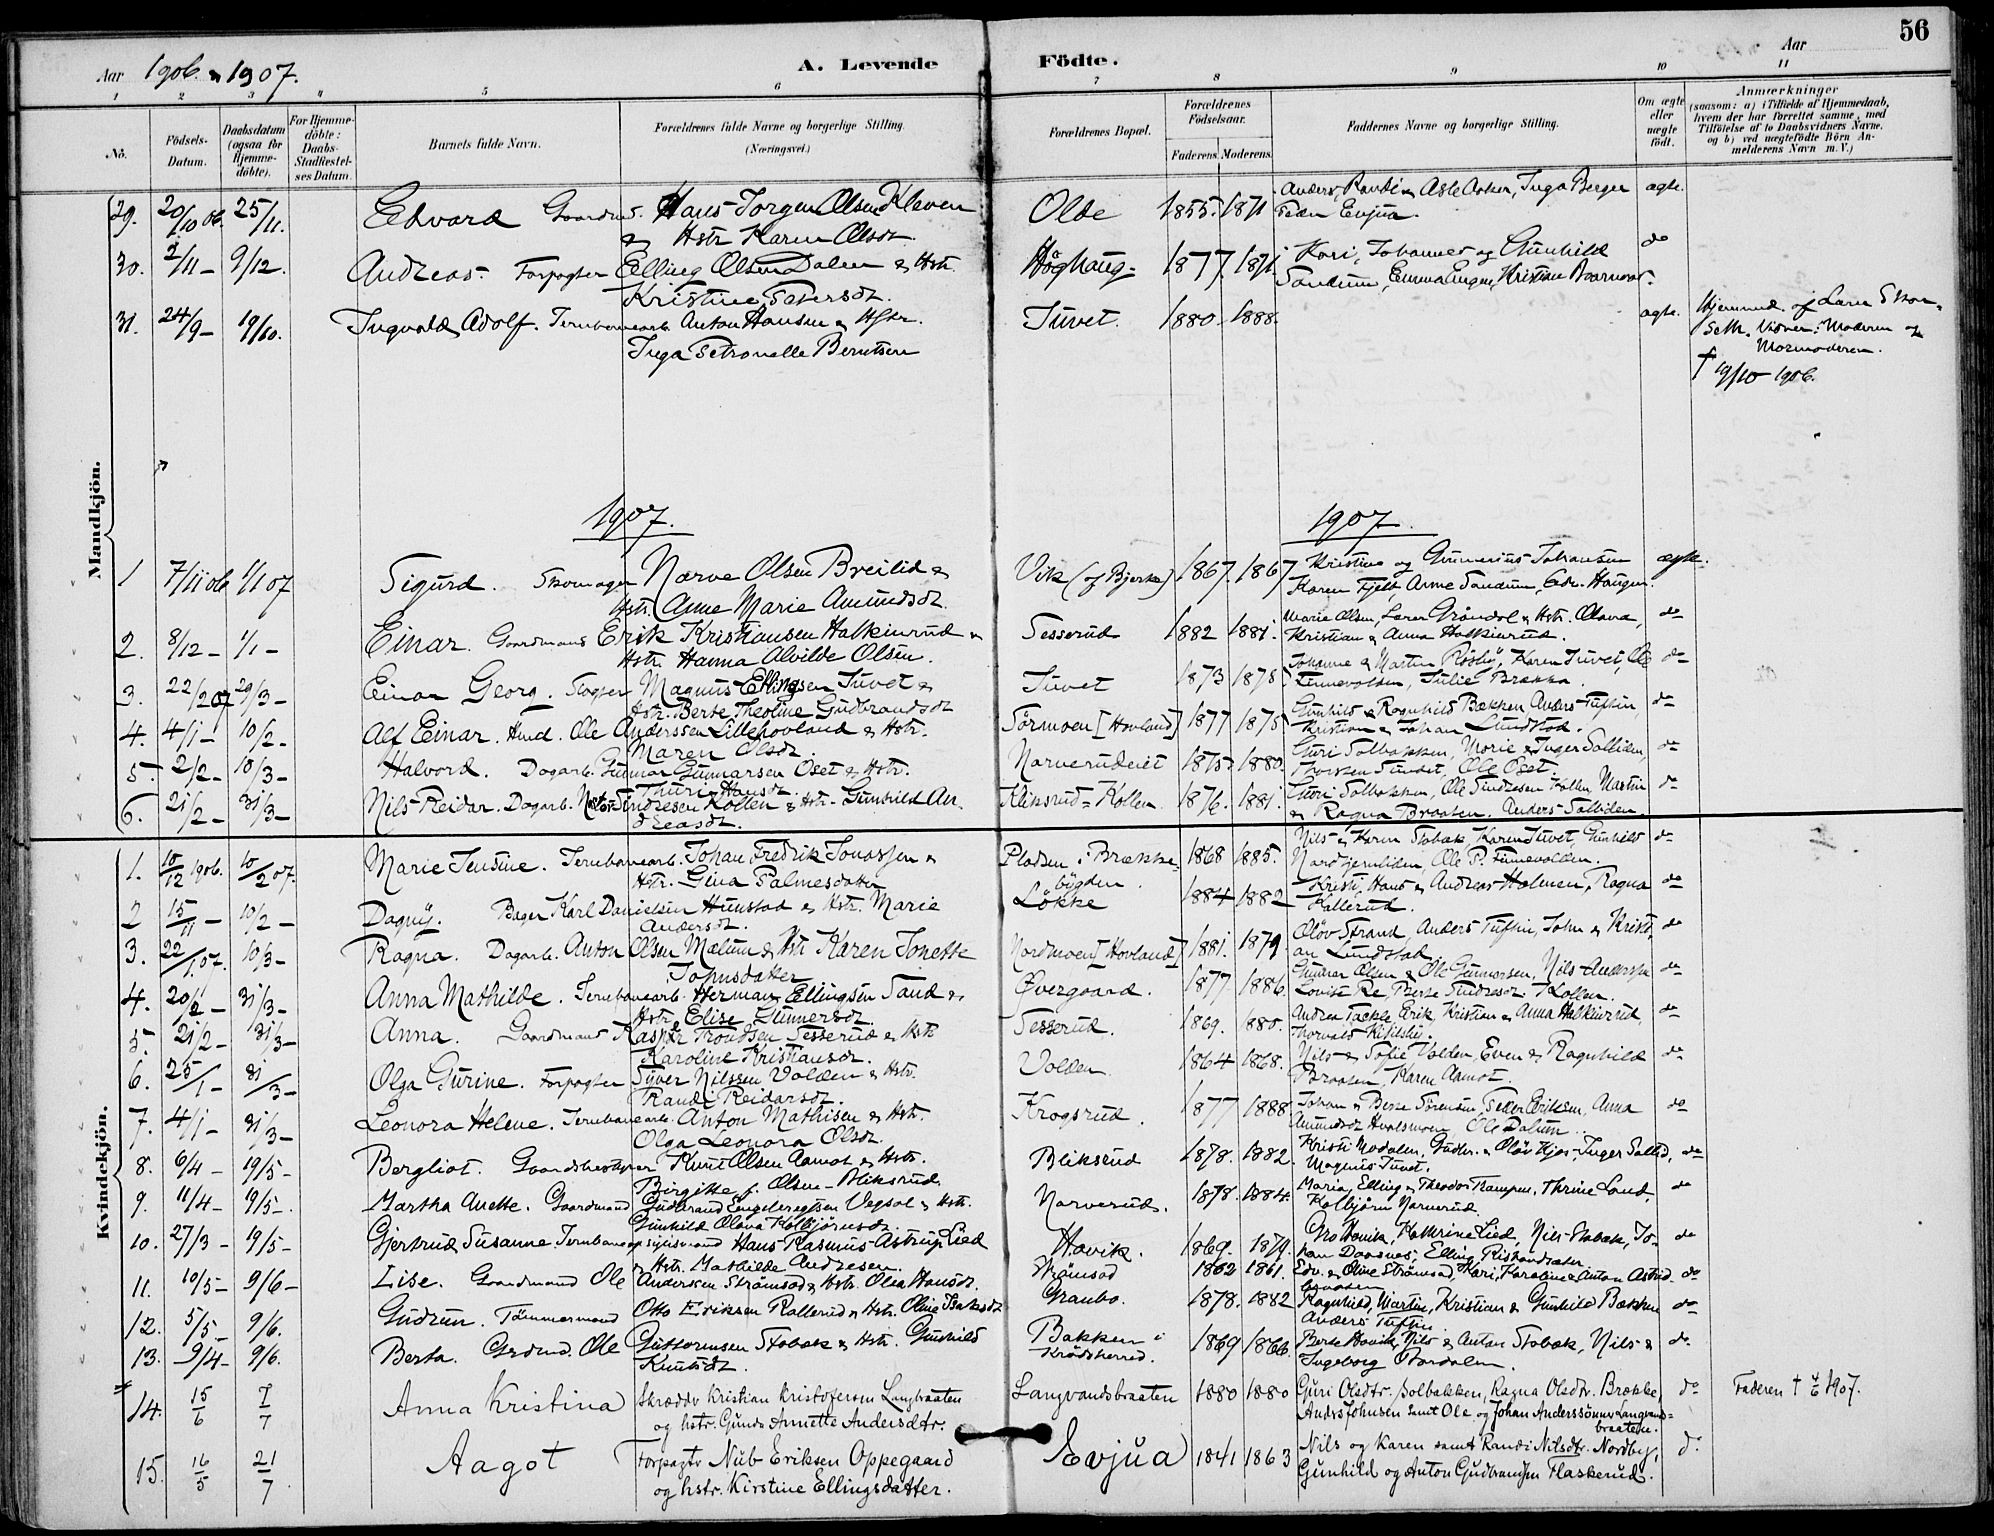 56
Aar 1906 & 1907.
A. Levende Födte.
Aar
1 2 3 4 5 6 7 8 9 10 11
No.
Födsels-Datum.
Daabsdatum (ogsaa for Hjemme-döbte).
For Hjemme-döbte: Daabs-Stadfestel-ses Datum.
Barnets fulde Navn.
Forældrenes fulde Navne og borgerlige Stilling. (Næringsvei.)
Forældrenes Bopæl.
Forældrenes Födselsaar.
Faderens. Moderens.
Faddernes Navne og borgerlige Stilling.
Om ægte eller uægte födt.
Anmærkninger (saasom: a) i Tilfælde af Hjemmedaab, hvem der har forrettet samme, med Tilföielse af to Daabsvidners Navne, og b) ved uægtefödte Börn An-melderens Navn m. V.)
Mandkjön.
29. 20/10 06. 25/11. Edvard Gaardm. Hans Jorgen Olsen Kleven & Hstr Karen Olsdt. Olde 1855. 1871 Anders, Randi & Asle Asker, Inga Berger Peder Evjua. ægte.
30. 2/11 - 9/12. Andreas Forpagter Elling Olsen Dalen & Hstr. Kristine Petersdt. Höghaug 1877. 1871. Kari, Johannes og Gunhild Sandum, Emma Engen, Kristian do
31. 24/9 - 19/10. Ingvald Adolf. Jernbanearb. Anton Hansen & Hstr. Inga Petronelle Berntsen Tuvet. 1880. 1888. ægte. Hjemmed. af Laura
Vidner: Moderen og Mormoderen.
† 19/10 1906.
1907. 1907.
1 7/11 06 1/1 07 Sigurd. Skomager Narve Olsen Breilid & Hstr. Anne Marie Amundsdt. Vik (af Bjerke) 1867. 1867 Kristine og Gunnerius Johansen Karen Fjeld, Anne Sandum, Edv. Haugen. ægte.
2. 8/12 - 1/1 - Einar. Gaardmand Erik Kristiansen Halkinrud & Hstr. Hanna Alvilde Olsen. Tesserud 1882 1881. Marie Olsen, Lærer Gröndal & Hstr. Olava, Kristian & Anna Halkinrud. do
3. 22/2 07 29/3 - Einar Georg. Magnus Ellingsen Tuvet & Hstr. Berte Theoline Gudbrandsdt Tuvet 1873 1878. Johanne & Martin Röshö, Karen Tuvet, Ole Finnevolden, Julie Brække. do
4. 4/1 - 10/2 - Alf Einar. Hmd. Ole Anderssen Lillehovland & Hstr. Maren Olsdt. Sörmoen [Hovland] 1877 1875 Gunhild & Ragnhild Bækken Anders Tuftin, Kristian & Johan Lundstad. do
5. 2/2 - 10/3 - Halvord. Dagarb. Gunnar Gunnarsen Oset & Hstr. Thuri Hansdt. Narverudeiet 1875. 1880. Guri Solbakken, Marie & Inger Solliden, Ole Oset. do
6. 21/2 - 31/3 - Nils Reidar. Dagarb. Sindresen Kollen & Hstr. Gunhild An-dreasdt. Kliksrud-Kollen 1876. 1881. Guri Solbakken, Ole Sindresen Kollen, Martin & Ragna Braaten. Anders Solliden. do
Kvindekjön.
1. 10/12 1906. 10/2 07. Marie Jensine. Jernbanearb. Johan Fredrik Jonassen & Hstr. Gina Palmesdatter Pladsen i Brække-bygden. 1868 1885. Nils & Karen Stabæk, Karen Tuvet, Gunhild Nordhjemliden, Ole P. Finnevolden. do
2 15/11 - 10/2 - Dagny. Bager Karl Danielsen Hunstad & Hstr. Marie Andersdt. Lökke 1884 1882 Kristi, Hans & Andreas Holmen, Ragna Kallerud. do
3. 22/1 07. 10/3 - Ragna. Dagarb. Anton Olsen Mælum & Hstr Karen Jonette Johnsdatter Nordmoen [Hovland] 1881. 1879 Olöv Strand, Anders Tuftin, John & Kristi-an Lundstad. do
4. 20/2 - 31/3 - Anna Mathilde. Jernbanearb. Herman Ellingsen Sand & Hstr. Elise Gunnersdt. Övergaard. 1877. 1886. Gunnar Olsen & Ole Gunnarsen, Nils Anderssen Lovise Re, Berte Sindresdt. Kollen. do
5. 21/2 - 31/3 - Anna. Gaardmand Kasper Trondsen Tesserud & Hstr Karoline Kristiansdt. Tesserud. 1869. 1880. Andrea Tackle, Erik, Kristian & Anna Halkinrud, Thorvald do
6. 25/1 - 31/3 - Olga Gurine. Forpagter Syver Nilssen Volden & Hstr. Randi Reidarsdt. Volden 1864 1868. Nils & Sofie Volden, Even & Ragnhild Braaten, Karen Aamot. do
7. 4/1 - 31/3 - Leonora Helene. Jernbanearb. Anton Mathisen & Hstr. Olga Leonora Olsdt. Krogsrud. 1877 1888. Johan & Berte Sörensen, Peder Eriksen, Anna Amundsdt Hvalsmoen Ole Dalen. do
8. 6/4 - 19/5 - Borgliot. Gaardsbestyrer Knut Olsen Aamot & Hstr. Birgitte f. Olsen Bliksrud. Bliksrud 1878. 1882. Kristi Modalen, Gudbr. & Olöv Hjer, Inger Sollid, Magnus Tuvet. do
9. 11/4 - 19/5 - Martha Anette. Gaardmand Gudbrand Engebregtsen Vegsal & Hstr. Gunhild Olava Kolbjörnsdt. Narverud. 1878. 1884. Maria, Elling & Theodor Trampen, Thrine Lond, Kolbjörn Narverud. do
10. 27/3 - 19/5 - Gjertrud Susanne. Jernbaneopsigtsmand Hans Rasmus Astrup Lied & Hstr. Mathilde Andresen. Hovik. 1869. 1879. Gro Hovik, Kathrine Lied, Nils Stabæk, Jo-han Daasnes, Elling do
11. 10/5 - 9/6 - Lise. Gaardmand Ole Anderssen Strömsod & Hstr. Olea Hansdt. Strömsod 1862 1861. Edv. & Oline Strömsod, Kari, Karoline & Anton Astrid-braaten do
12. 5/5 - 9/6. Gudrun. Tömmermand Otto Eriksen Rallerud & Hstr. Oline Isaksdt Granbo. 1878. 1882 Ragnhild, Martin, Kristian & Gunhild Bækken Anders Tuftin. do
13. 9/4 - 9/6. Berta. Grdmd. Ole Guttormsen Stabæk & Hstr. Gunhild Knutsdt. Bakken i Krödsherred. 1869 1866. Berte Hovik, Nils & Anton Stabæk, Nils & Ingeborg Nordalen. do
14. 15/6 7/7 Anna Kristina Skrædder Kristian Kristofersen Langbraaten og hstr. Gunda Annette Andersdtr. Langvandsbraaten 1880 1880 Guri Olsdtr. Solbakken, Ragna Olsdtr. Brække, Anders Johnsen samt Ole og Johan Anderssönner Langvands=braaten. do Faderen † 4/6 1907.
15. 16/5 21/7 Aagot Forpagtr Nub Eriksen Oppegaard og hstr. Kirstine Ellingsdatter. Evjua 1841 1863 Nils og Karen samt Randi Nilsdtr. Nordby, Gunhild og Anton Gudbrandsen Flaskerud. do